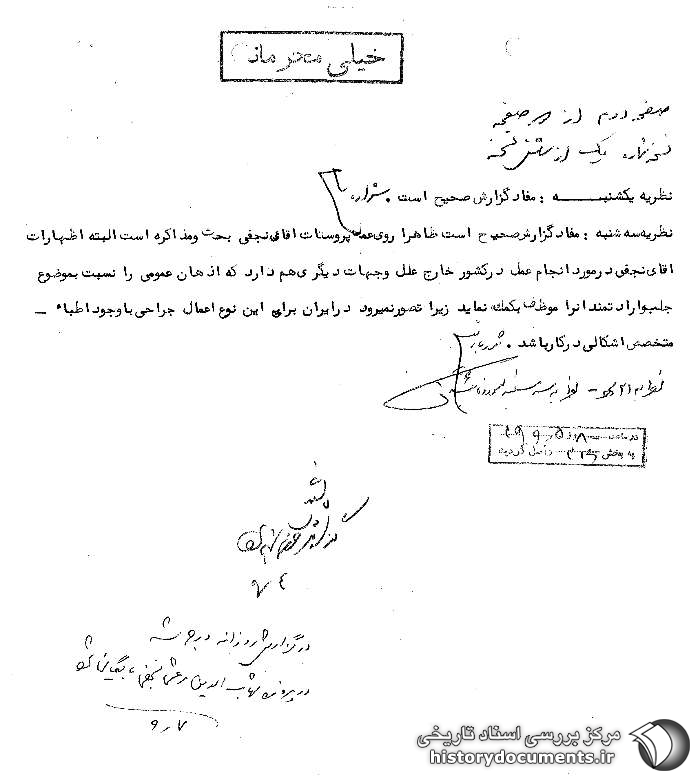 خیلی محرمانه
صفحه دوم از دو صفحه
نسخه شماره یک از شش نسخه
نظریه یکشنبه : مفاد گزارش صحیح است .
نظریه سه شنبه : مفاد گزارش صحیح است ظاهرا روی عمل پروستات اقای نجفی بحث ومذاکره است البته اظهارات
اقای نجفی در مورد انجام عمل در کشور خارج علل وجهات دیگری هم دارد که اذهان عمومی را نسبت بموضوع
جلب وارادتمند انرا موظف بکمک نماید زیرا تصور نمیرود در ایران برای این نوع اعمال جراحی با وجود اطباء
متخصص اشکالی در کار باشد .
در ساعت
به بخش واصل گردید
در گزارش روزانه درج شد
در پرونده شهاب الدین مرعشی نجفی بایگانی شود
۷ر۹
مرکز بررسی اسناد تاریخی
historydocuments.ir